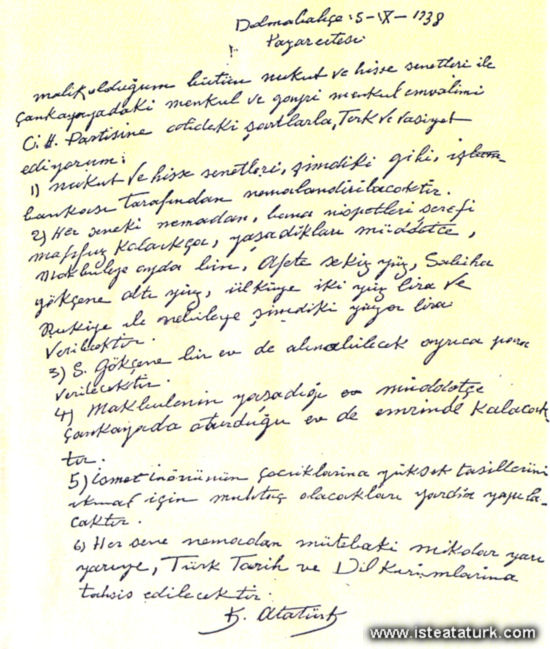 Dolmabahçe: 5-IX-1938
Pazarertesi
malik olduğum bütün nukut ve hisse senetleri ile
Çankayadaki menkul ve gayri menkul emvalimi
C. H. Partisine atideki şartlarla, Terk ve vasiyet
ediyorum:
1) Nukut ve hisse senetleri, şimdiki gibi, iş
bankası tarafından nemalandırılacaktır.
2) Her seneki nemadan, bana nispetleri şerefi
mahfuz kaldıkça, yaşadıkları müddetçe,
Makbuleye ayda bin, Afete sekiz yüz, Sabiha
gökçene altı yüz, ülküye iki yüz lira ve
Rukiye ile nebileye şimdiki yüzer lira
verilecektir.
3) S. Gökçene bir ev de alınabilecek ayrıca para
verilecektir.
4) Makbulenin yaşadığı müddetçe
Çankayada oturduğu ev de emrinde kalacak
tır.
5) ismet inönünün çocuklarına yüksek tasillerini
ikmal için muhtaç olacakları yardım yapıla-
caktır.
6) Her sene nemadan mütebaki mikdar yarı
yarıya, Türk Tarih ve Dil Kurumlarına
tahsis edilecektir.
K. Atatürk
www.isteataturk.com